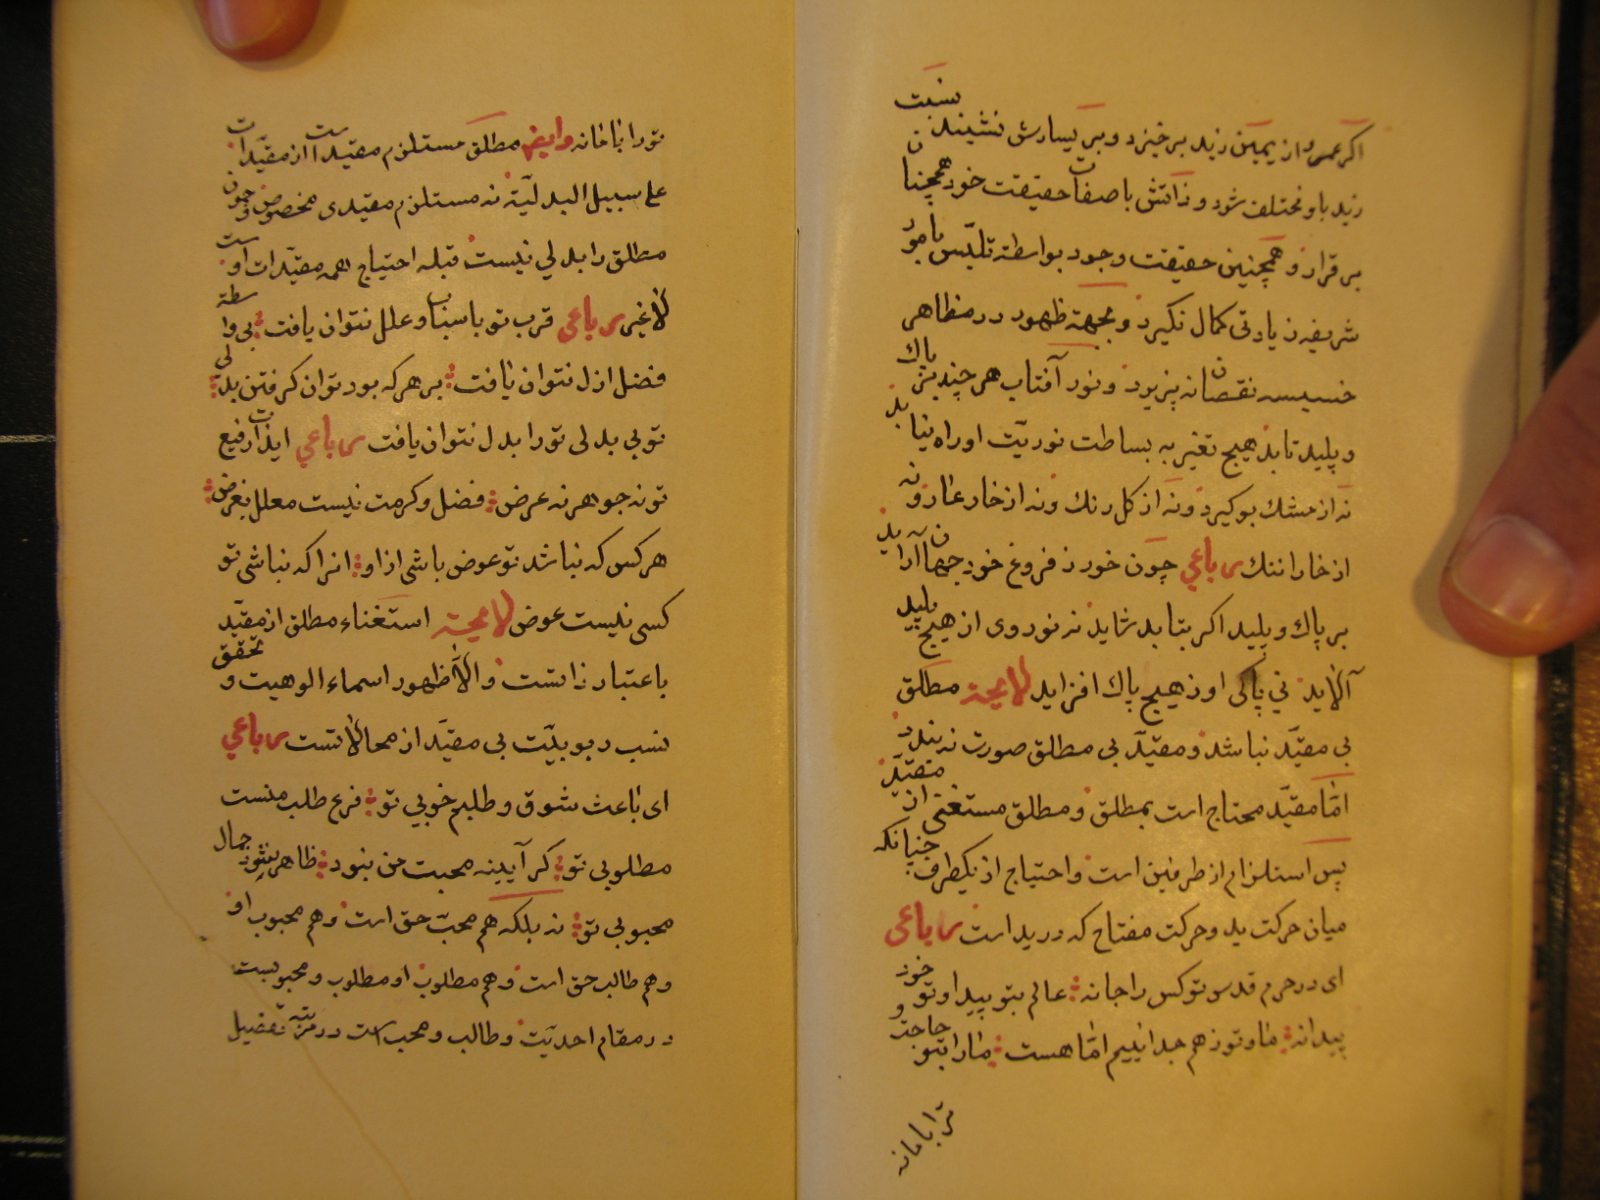 اکر عمرو از یمین زید برخیزد و بر یسارش نشیند نسبت
زید با او مختلف شود و ذاتش با صفات حقیقت خود همچنان
بر قرار و همچنین حقیقت وجود بواسطهٔ تلبّس بامور
شریفه زیادتی کمال نکیرد و بجهة ظهور در مظاهر
خسیسه نقصان نپزیرد و نور آفتاب هر چند بر پاك
و پلید تابد هیچ تغیر به بساطت نوریّت او راه نیابد
نه از مشك بو کیرد و نه از کل رنك و نه از خار عار و نه
از خارا ننك رباعی چون خور ز فروغ خود جهان آراید
بر پاك و پلید اکر بتابد شاید نه نور وی از هیچ پلید
آلاید نی پاکی او ز هیچ پاك افزاید لایحة مطلق
بی مقیّد نباشد و مقیّد بی مطلق صورت نه بندد
امّا مقیّد محتاج است بمطلق و مطلق مستغنی از مقیّد
پس استلزام از طرفین است و احتیاج از یکطرف چنانکه
میان حرکت ید و حرکت مفتاح که در ید است رباعی
ای در حرم قدس تو کس را جا نه عالم بتو پیدا و تو خود
پیدا نه ما و تو ز هم جدا نییم امّا هست ما را بتو حاجت و
ترا با ما نه
تو را با ما نه وایضا مطلق مستلزم مقیدیست از مقیّدات
علی سبیل البدلیّة نه مستلزم مقیدی مخصوص و چون
مطلق را بدلی نیست قبله احتیاج همه مقیّدات اوست
لا غیر رباعی قرب تو باسباب و علل نتوان یافت بی واسطهٔ
فضل ازل نتوان یافت بر هر که بود توان کرفتن بدلی
تو بی بدلی تو را بدل نتوان یافت رباعی ای ذات رفیع
تو نه جوهر نه عرض فضل و کرمت نیست معلل بغرض
هر کس که نباشد تو عوض باشی از او انرا که نباشی تو
کسی نیست عوض لایحة استغناء مطلق از مقیّد
باعتبار ذاتست و الّا ظهور اسماء الوهیت و تحقق
نسب ربوبیّت بی مقیّد از محالاتست رباعی
ای باعث شوق و طلبم خوبی تو فرع طلب منست
مطلوبی تو کر آیینه محبت من نبود ظاهر نشود جمال
محبوبی تو نه بلکه هم محبّ حق است و هم محبوب او
و هم طالب حق است و هم مطلوب او مطلوب و محبوبست
در مقام احدیّت و طالب و محب است در مرتبه تفصیل